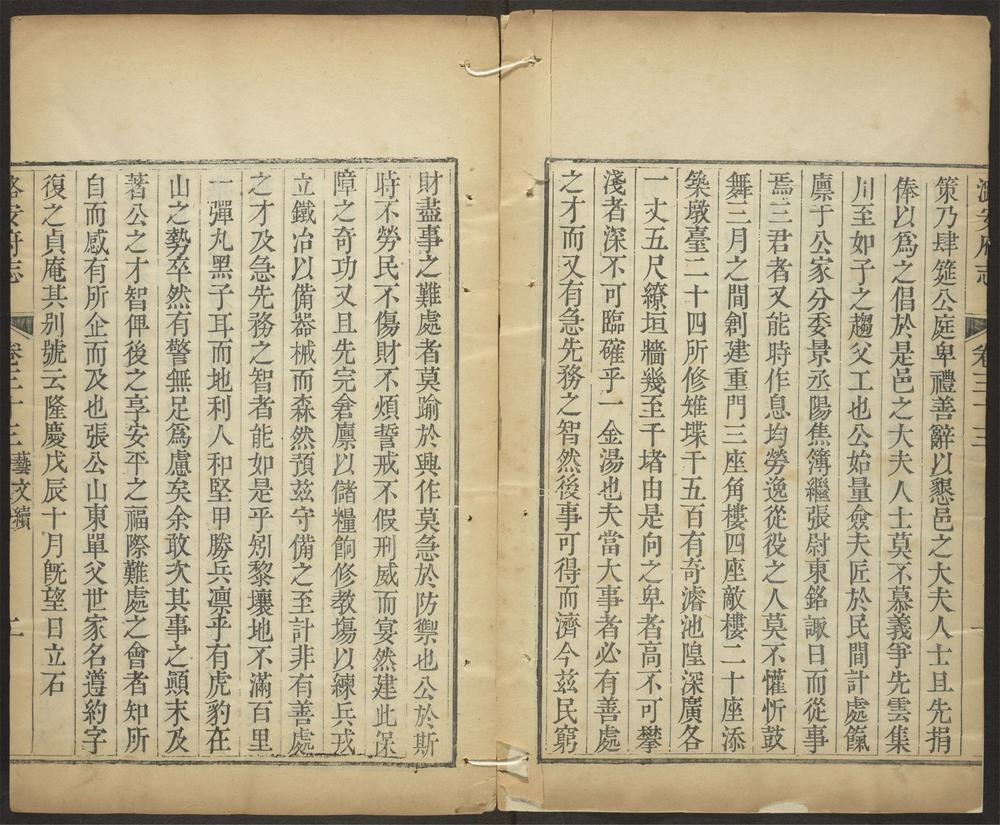 潞安府志 卷三十三
策乃肆筵公庭卑禮善辭以懇邑之大夫人士且先捐
俸以爲之倡於是邑之大夫人士莫不慕義爭先雲集
川至如子之趨父工也公始量僉夫匠於民間計處餼
廪于公家分委景丞陽焦簿繼張尉東銘諏日而從事
焉三君者又能時作息均勞逸從役之人莫不懽忻鼓
舞三月之間創建重門三座角樓四座敵樓二十座添
築墩臺二十四所修雉堞千五百有奇濬池隍深廣各
一丈五尺繚垣牆幾至千堵由是向之卑者高不可攀
淺者深不可臨確乎一金湯也夫當大事者必有善處
之才而又有急先務之智然後事可得而濟今茲民窮
財盡事之難處者莫踰於興作莫急於防禦也公於斯
時不勞民不傷財不煩誓戒不假刑威而宴然建此保
障之奇功又且先完倉廪以儲糧餉修教塲以練兵戎
立鐵冶以備器械而森然預茲守備之至計非有善處
之才及急先務之智者能如是乎矧黎壤地不滿百里
一彈丸黑子耳而地利人和堅甲勝兵凛乎有虎豹在
山之勢卒然有警無足爲慮矣余敢次其事之顚末及
著公之才智俾後之享安平之福際難處之會者知所
自而感有所企而及也張公山東單父世家名遵約字
復之貞庵其别號云隆慶戊辰十月旣望日立石
潞安府志 卷三十三 藝文續 二